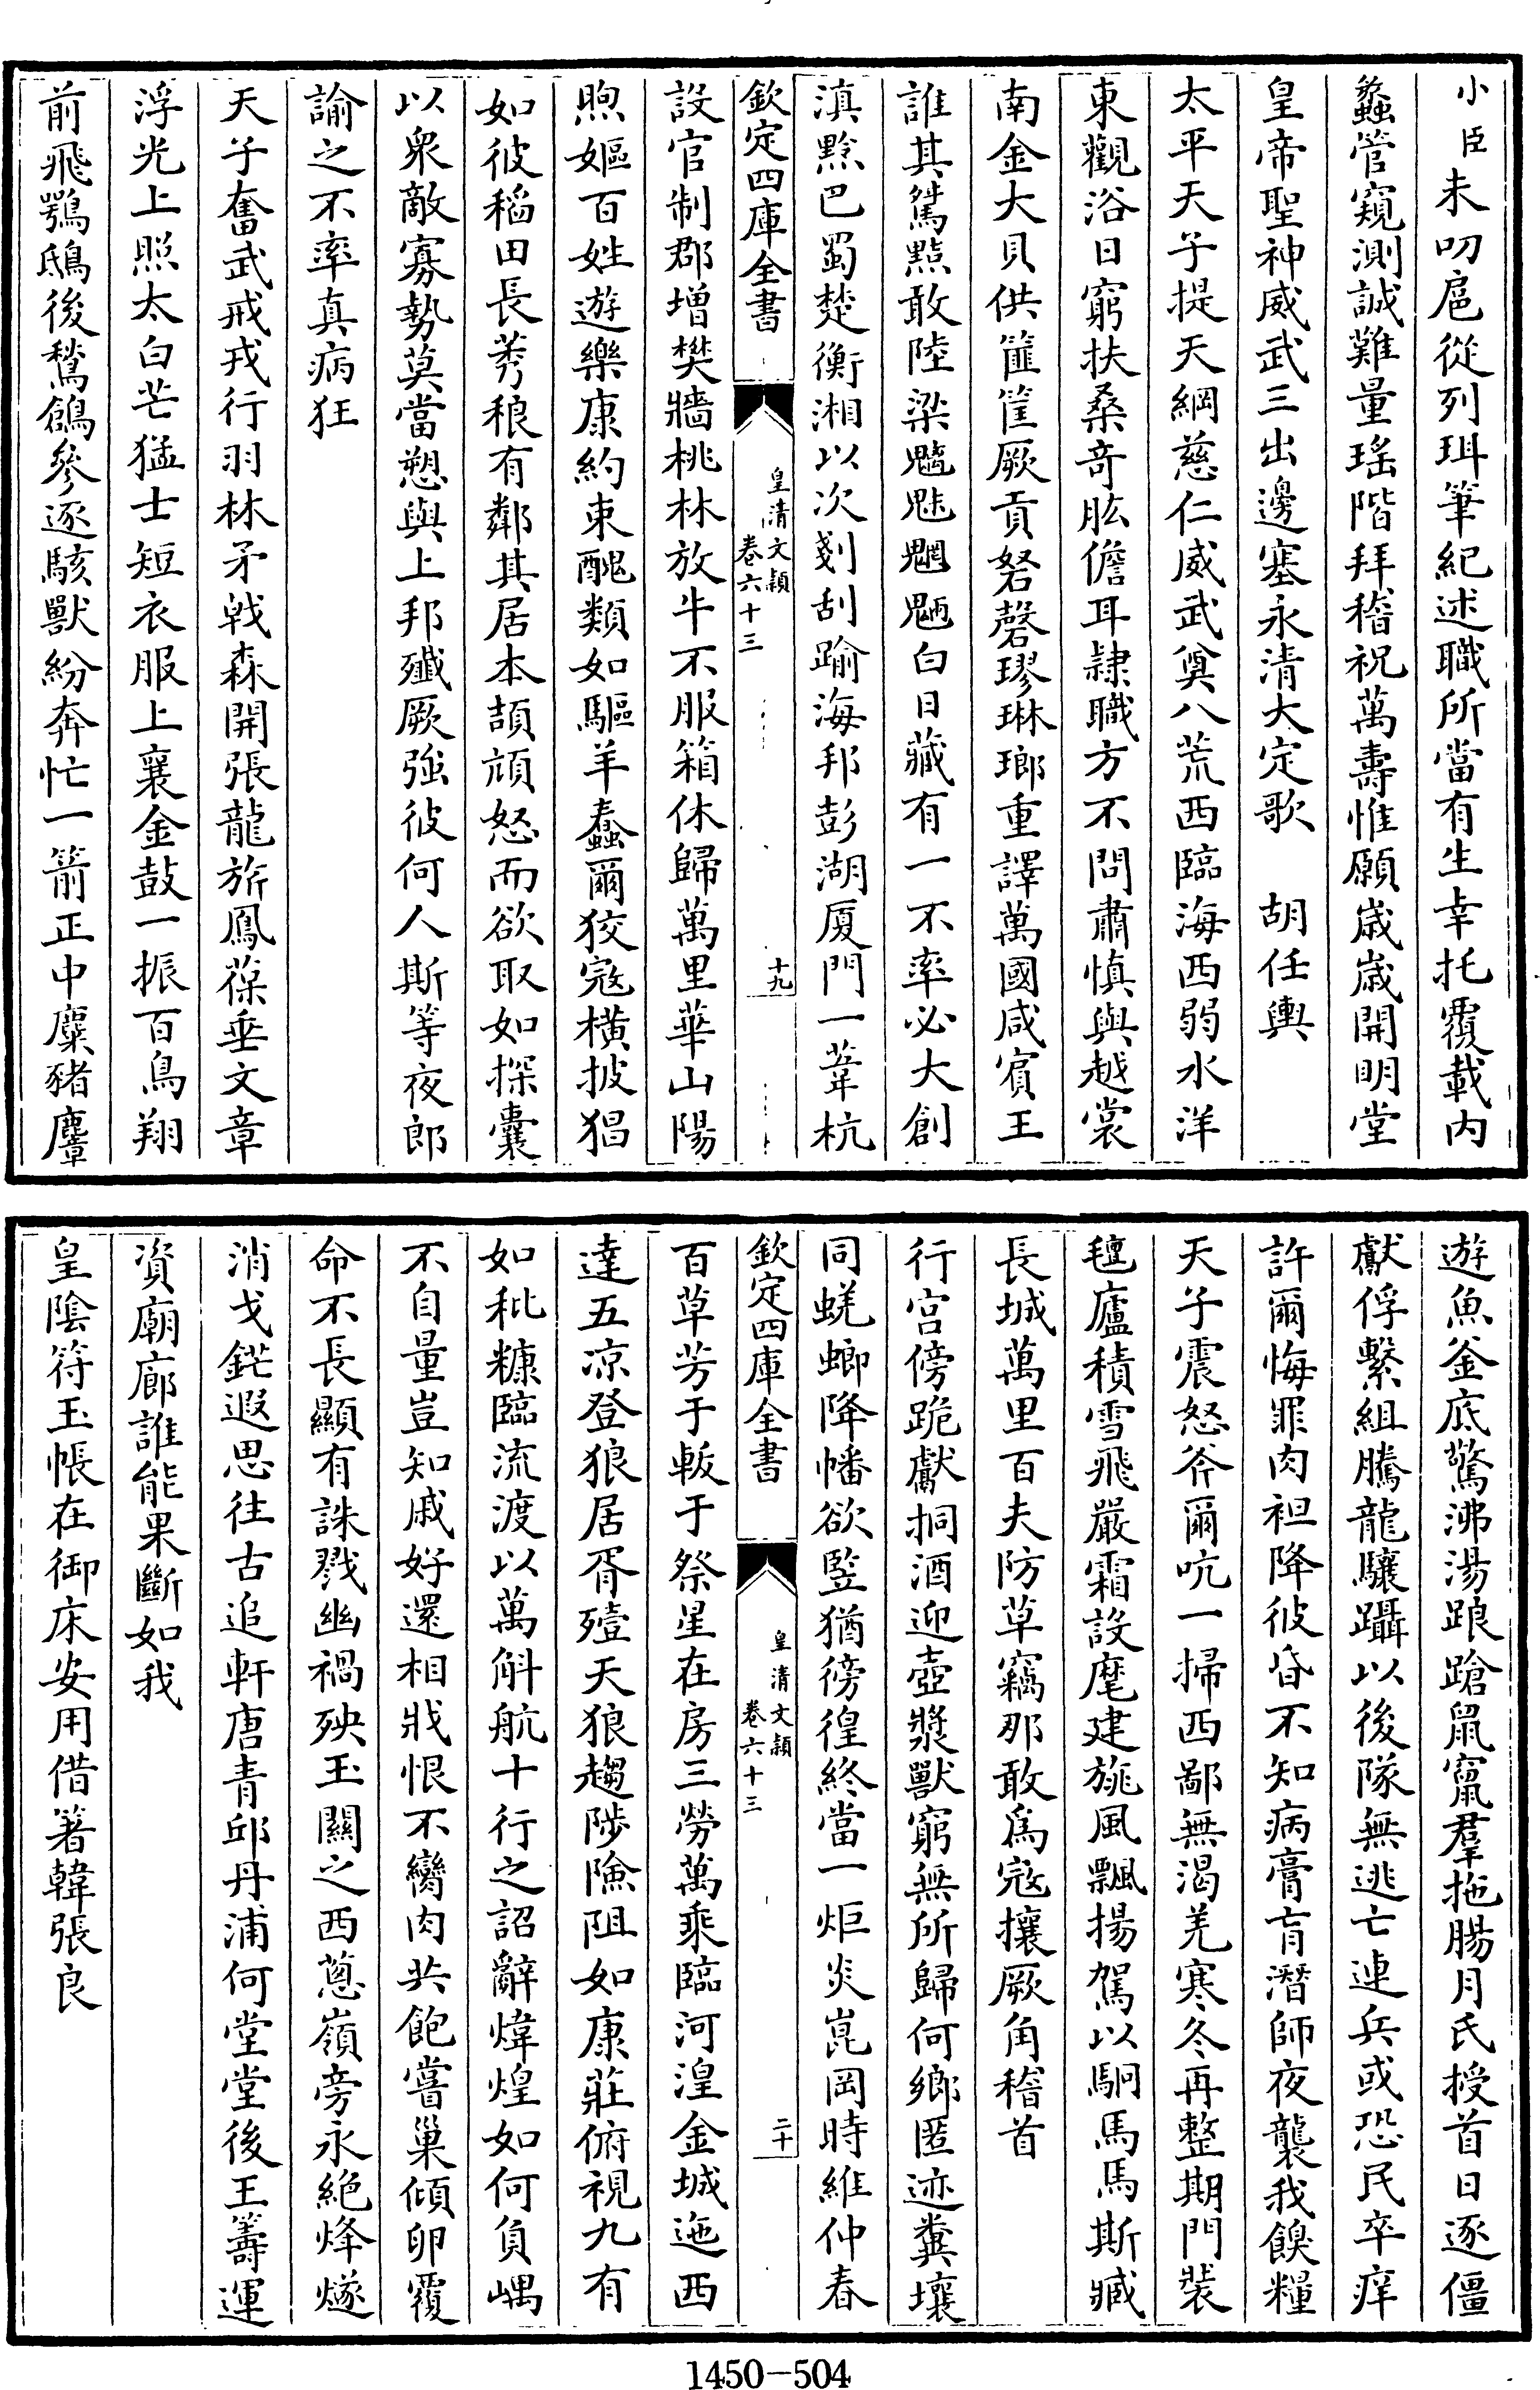 小臣未叨扈從列珥筆紀述職所當有生幸托覆載内
蠡管窺測誠難量瑶階拜稽祝萬壽惟願歳歳開明堂
皇帝聖神威武三出邊塞永清大定歌　胡任輿
太平天子提天綱慈仁威武奠八荒西臨海西弱水洋
東觀浴日窮扶桑竒肱儋耳隷職方不問肅慎與越裳
南金大貝供篚筐厥貢砮磬璆琳瑯重譯萬國咸賔王
誰其騺㸃敢陸梁魑魅魍魎白日藏有一不率必大創
滇黔巴蜀楚衡湘以次剗刮踰海邦彭湖厦門一葦杭
欽定四庫全書
皇清文穎
卷六十三
十九
設官制郡增樊牆桃林放牛不服箱休歸萬里華山陽
煦嫗百姓遊樂康約束醜類如驅羊蠢爾狡寇横披猖
如彼稻田長莠稂有鄰其居本頡頏怒而欲取如探囊
以衆敵寡勢莫當愬與上邦殲厥強彼何人斯等夜郎
諭之不率真病狂
天子奮武戒戎行羽林矛戟森開張龍旂鳳葆垂文章
浮光上照太白芒猛士短衣服上襄金鼓一振百鳥翔
前飛鶚鴟後鶖鶬參逐駭獸紛奔忙一箭正中麋豬麞
遊魚釜底驚沸湯踉蹌鼠竄羣拖腸月氏授首日逐僵
獻俘繫組騰龍驤躡以後隊無逃亡連兵或恐民卒痒
許爾悔罪肉袒降彼昏不知病膏肓潛師夜襲我餱糧
天子震怒斧爾吭一掃西鄙無渴羌寒冬再整期門裝
氊廬積雪飛嚴霜設麾建旐風飄揚駕以駉馬馬斯臧
長城萬里百夫防草竊那敢為寇攘厥角稽首
行宫傍跪獻挏酒迎壺漿獸窮無所歸何鄉匿迹糞壤
同蜣螂降幡欲竪猶徬徨終當一炬炎崑岡時維仲春
欽定四庫全書
皇清文穎
卷六十三
二十
百草芳于軷于祭星在房三勞萬乘臨河湟金城迤西
達五凉登狼居胥殪天狼趨陟險阻如康莊俯視九有
如秕糠臨流渡以萬斛航十行之詔辭煒煌如何負嵎
不自量豈知戚好還相戕恨不臠肉共飽嘗巢傾卵覆
命不長顯有誅戮幽禍殃玉關之西蔥嶺旁永絶烽燧
消戈鋩遐思往古追軒唐青邱丹浦何堂堂後王籌運
資廟廊誰能果斷如我
皇陰符玉帳在御床安用借箸韓張良
1450-504